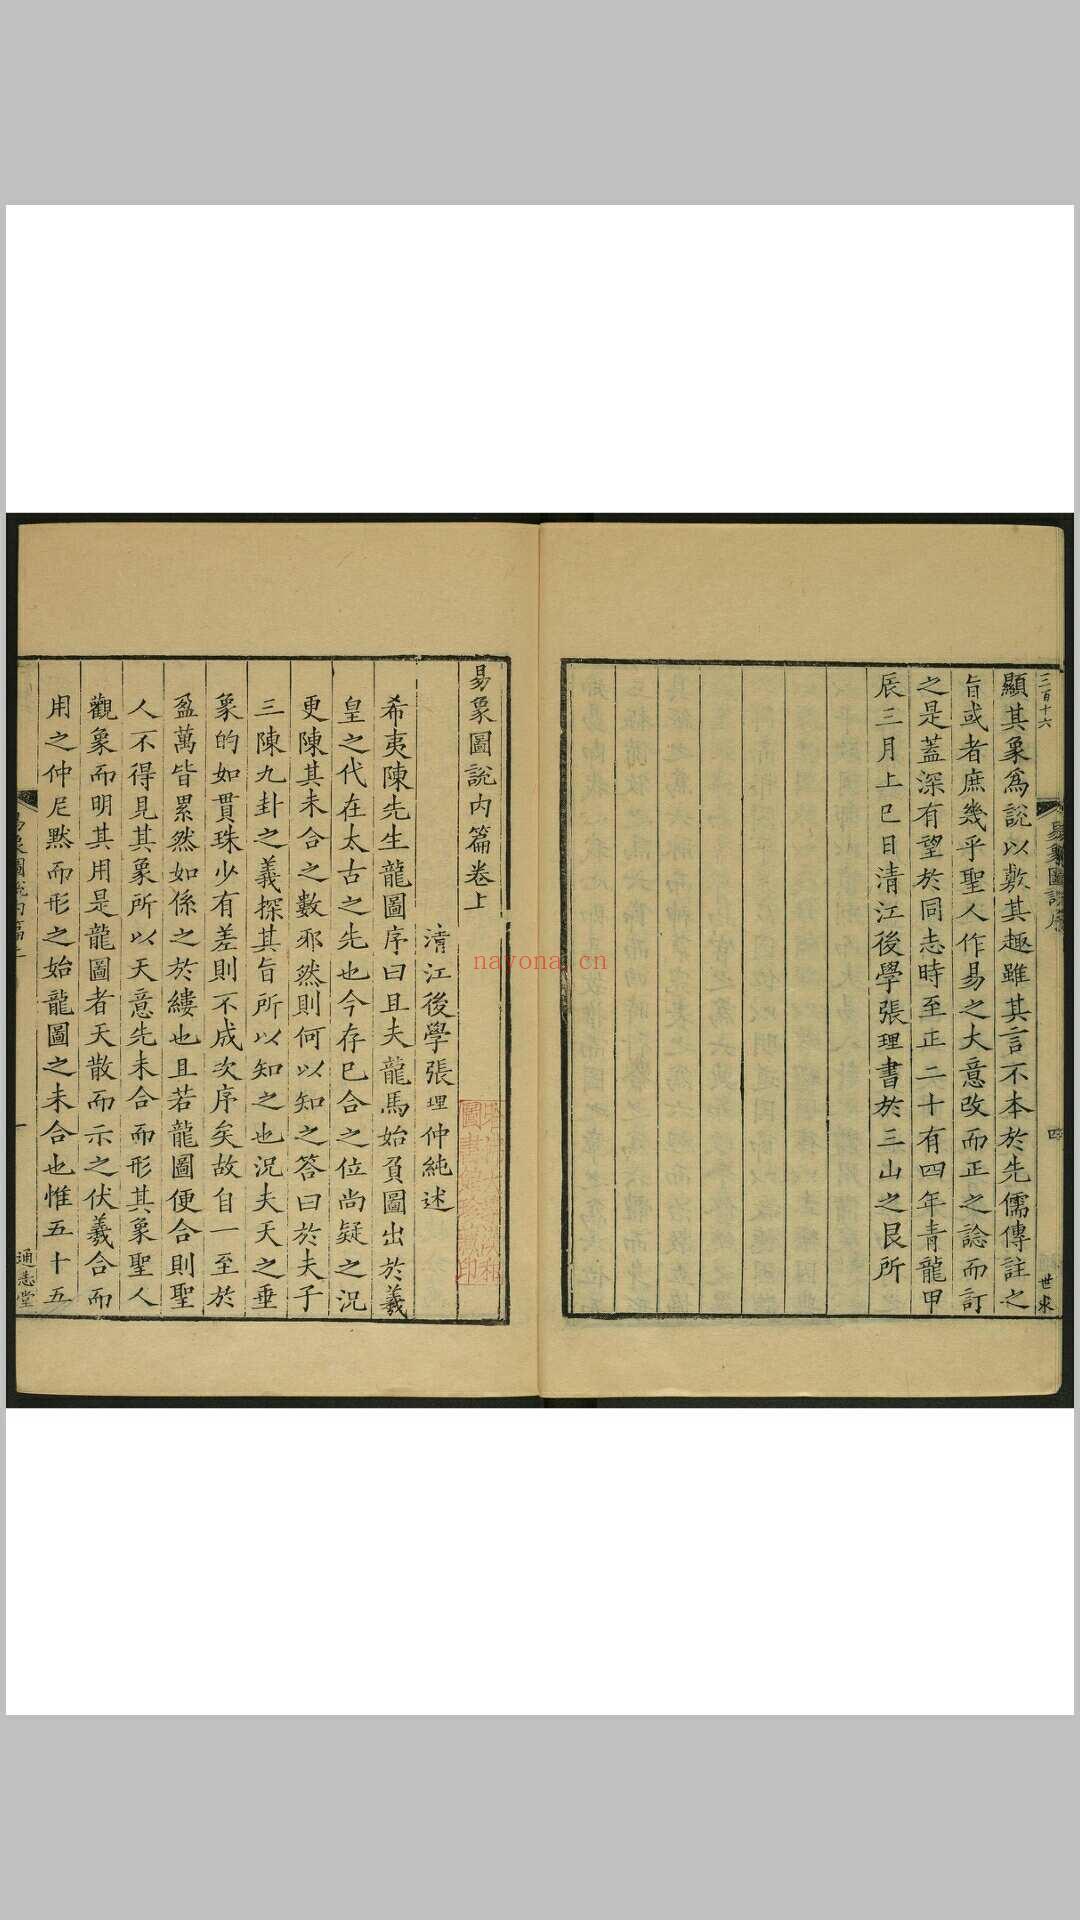 三百十六
易象圖說序
四
世求
顯其象爲說以敷其趣雖其言不本於先儒傳註之
旨或者庶幾乎聖人作易之大意改而正之諗而訂
之是蓋深有望於同志時至正二十有四年青龍甲
辰三月上巳日清江後學張理書於三山之艮所
易象圖說內篇卷上
清江後學張理仲純述
希夷陳先生龍圖序曰且夫龍馬始負圖出於羲
皇之代在太古之先也今存已合之位尚疑之況
更陳其未合之數邪然則何以知之答曰於夫子
三陳九卦之義探其旨所以知之也況夫天之垂
象的如貫珠少有差則不成次序矣故自一至於
盈萬皆累然如係之於縷也且若龍圖便合則聖
人不得見其象所以天意先未合而形其象聖人
觀象而明其用是龍圖者天散而示之伏羲合而
用之仲尼默而形之始龍圖之未合也惟五十五
易象圖說內篇上
一
通志堂
nayona.cn